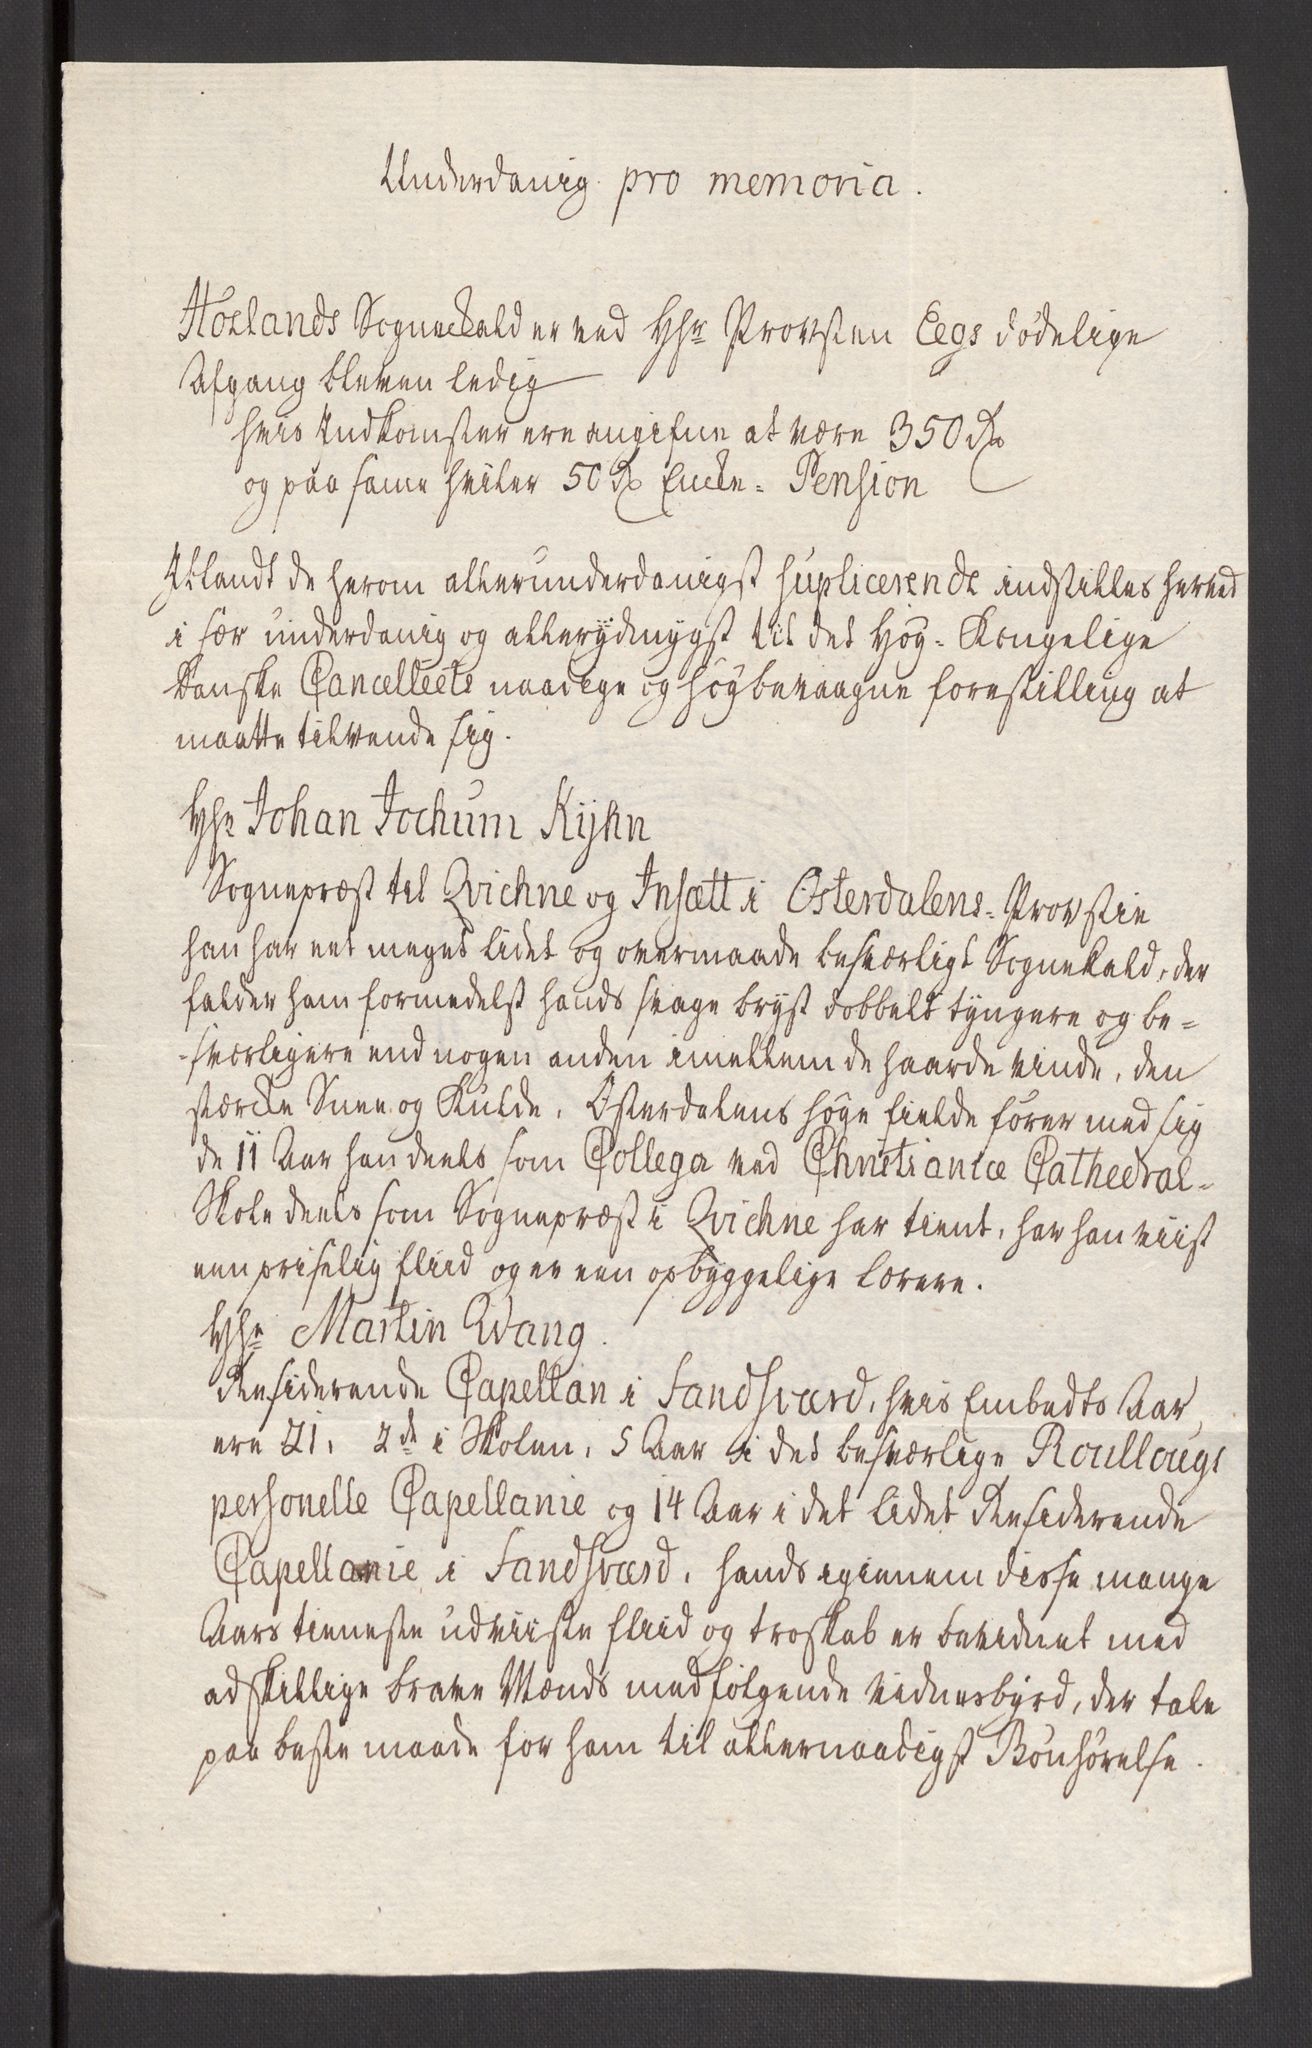 Underdanig pro memoria.
Hölands Sognekald er ved Hr Provsten Eegs dødelige
Afgang bleven ledig
hvis Indkomster ere angifne at være 350 Rd
og paa same hviler 50 Rd Encke-Pension
Iblandt de herom allerunderdanigst suplicerende indstilles herved
i sær underdanig og allerydmygst til det Høy-Kongelige
danske Cancellies naadige og høybevaagne forestilling at
maatte tilvende sig.
Hr Johan Jochum Kijhn
Sognepræst til Qvichne og Insætt i Østerdalens-Provstie
han har eet meget lidet og overmaade besværligt Sognekald, der
falder ham formedelst hands svage bryst dobbelt tyngere og be-
-sværligere end nogen anden imellem de haarde vinde, den
stærcke Snee og Kulde, Østerdalens høye fielde fører med sig
de 11 Aar han deels som Collega ved Christianiæ Cathedral-
Skole deels som Sognepræst i Qvichne har tient, har han viist
een priselig fliid og er een opbyggelige Lærere.
Hr Martin Wang.
Residerende Capellan i Sandsværd, hvis Embeds Aar
ere 21, 2de i Skolen, 5 Aar i det besværlige Roullougs
personelle Capellanie og 14 Aar i det lidet Residerende
Capellanie i Sandsværd, hands igiennem disse mange
Aars tieneste udviiste fliid og troskab er bevidnet med
adskillige brave Mænds medfølgende vidnesbyrd, der tale
paa beste maade for ham til allernaadigst Bønhørelse.